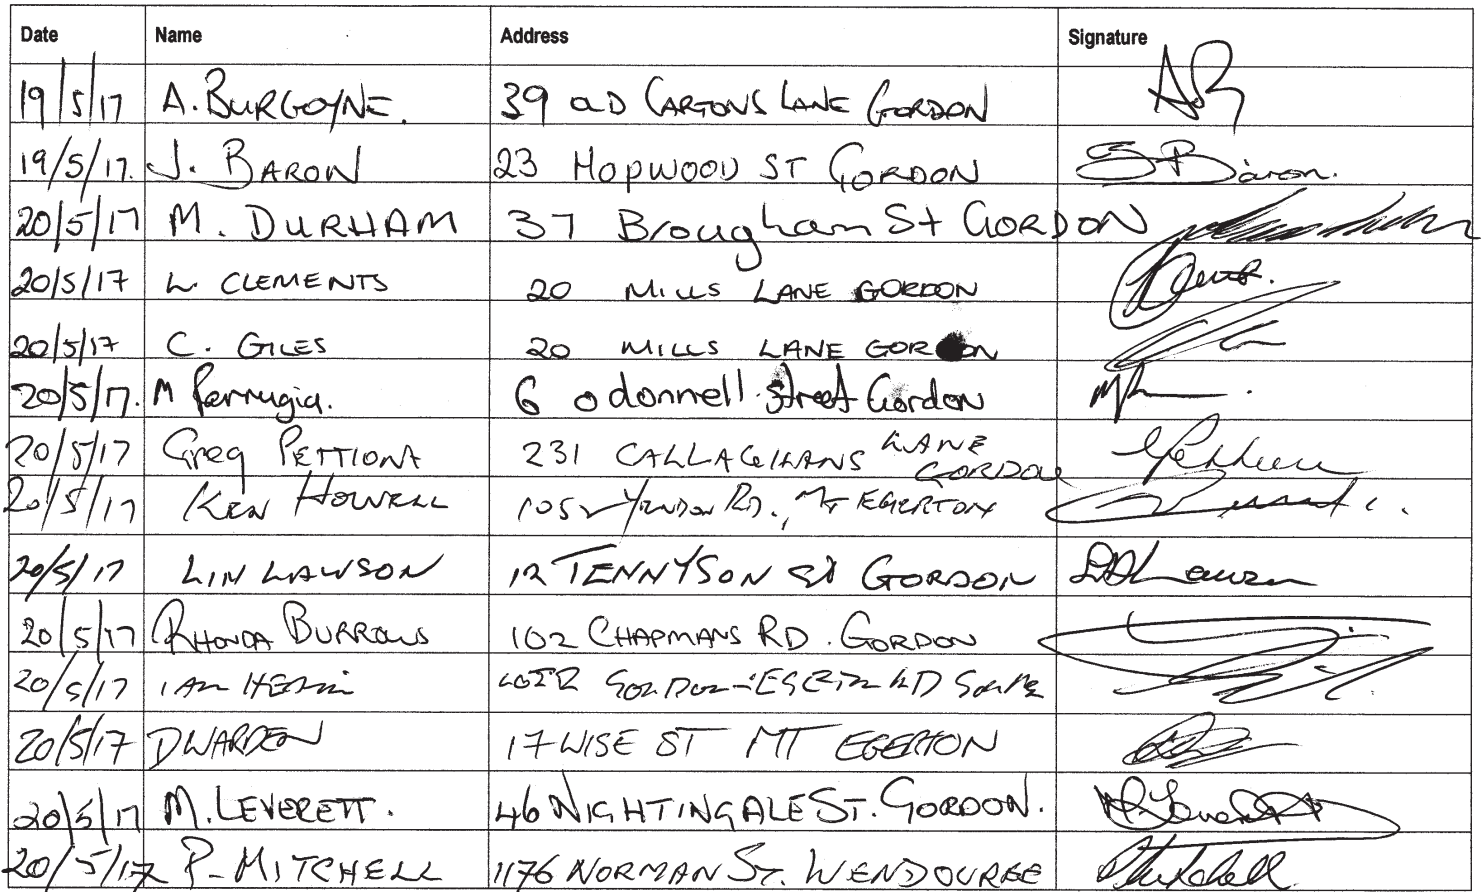 Date Name Address Signature
19/5/17 A. BURGOYNE. 39 OLD CARTONS LANE GORDON
19/5/17. J. BARON 23 HOPWOOD ST GORDON
20/5/17 M. DURHAM 37 Brougham St GORDON
20/5/17 L. CLEMENTS 20 MILLS LANE GORDON
20/5/17 C. GILES 20 MILLS LANE GORDON
20/5/17. M Farrugia. 6 odonnell street Gordon
20/5/17 Greg PETTIONA 231 CALLAGHANS LANE
GORDON
20/5/17 KEN HOWELL YENDON RD., MT EGERTON
20/5/17 LIN LAWSON 12 TENNYSON ST GORDON
20/5/17 RHONDA BURROWS 102 CHAPMANS RD. GORDON
20/5/17 IAN GORDON-EGERTON RD
20/5/17 D WARDEN 17 WISE ST MT EGERTON
20/5/17 M. LEVERETT. 46 NIGHTINGALE ST. GORDON.
20/5/17 P. MITCHELL 1176 NORMAN ST. WENDOUREE